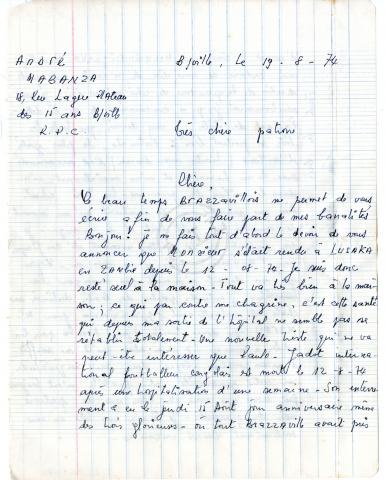 ANDRÉ
MABANZA
18, Rue Lagué Plateau
des 15 ans B/ville
R.P.C.
B/ville, le 19 - 8 - 74
très chère patrone
Chère,
Ce beau temps BRAZZAVILLOIS me permet de vous
écrire afin de vous faire part de mes banalités
Bonjour! je me fais tout d'abord le devoir de vous
annoncer que MONSIEUR s'était rendu à LUSAKA
en ZAMBIE depuis le 12 - 08 - 74. Je suis donc
resté seul à la maison. Tout va très bien à la mai-
son; ce qui par contre me chagrine, c'est cette santé
qui depuis ma sortie de l'hôpital ne semble pas se
rétablir totalement. Une nouvelle triste qui ne va
peut-être intéresser que Paulo. Jadot interna-
tional footballeur congolais est morte le 12-8-74
après une hospitalisation d'une semaine. Son enterre
ment a eu le jeudi 15 Août jour anniversaire même
des trois glorieuses - où tout BRAZZAVILLE avait pris